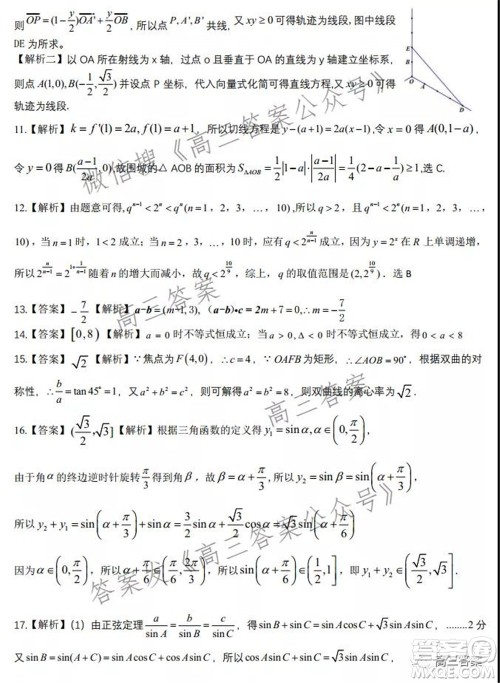 则 $\overrightarrow{OP}=(1-\frac{y}{2})\overrightarrow{OA'}+\frac{y}{2}\overrightarrow{OB'}$ 共线, 所以点 P, A', B' 共线, 又 xy ≥ 0 可得轨迹为线段, 图中线段
DE 为所求。
【解析二】以 OA 所在射线为 x 轴, 过点 o 且垂直于 OA 的直线为 y 轴建立坐标系,
则点 $A(1,0),B(-\frac{1}{2},\frac{\sqrt{3}}{2})$ 并设点 P 坐标, 代入向量式化简可得直线方程, 又 xy ≥ 0 可得
轨迹为线段.
11.【解析】$k=f'(1)=2a,f(1)=a+1$, 所以切线方程是 $y-(a+1)=2a(x-1)$,令 $x=0$ 得 $A(0,1-a)$,
令 $y=0$ 得 $B(\frac{a-1}{2a},0)$,故围成的△ AOB 的面积为 $S_{\Delta AOB}=\frac{1}{2}|1-a|\cdot|\frac{a-1}{2a}|=\frac{1}{4}(2-a)\geq1$,选 C.
12.【解析】由题意可得, $q^{n-1}<2^n<q^n(n=1,2,3,…,10)$, 所以 $q>2$, 且 $q^{n-1}<2^n(n=1,2,3,…,$
10), 当 n=1时, 1<2成立; 当 n=2, 3, …, 10时, 应有 $q<2^{\frac{n}{n-1}}$成立, 因为 $y=2^x$ 在 R 上单调递增,
所以 $2^{\frac{n}{n-1}}=2^{1+\frac{1}{n-1}}$ 随着 n 的增大而减小, 故 $q<2^{\frac{10}{9}}$, 综上, q 的取值范围是 $(2,2^{\frac{10}{9}})$. 选 B
13.【答案】$-\frac{7}{2}$【解析】a−b=(m-1,3), (a−b)•c=2m+7=0,∴m=$-\frac{7}{2}$
14.【答案】[0,8)【解析】a=0时不等式恒成立; 当 a>0,Δ<0时不等式恒成立, 得 0<a<8
15.【答案】$\sqrt{2}$【解析】∵焦点为 F(4,0), ∴c=4, ∵OAFB 为矩形, ∴∠AOB=90°, 根据双曲的对
称性, ∴$\frac{b}{a}=\tan45°=1$, 又 $a^2+b^2=c^2$, 则可得 $a^2=b^2=8$, 则双曲线的离心率为 $\sqrt{2}$.
16.【答案】$(\frac{\sqrt{3}}{2},\sqrt{3}]$【解析】根据三角函数的定义得 $y_1=\sin\alpha,\alpha\in\left(0,\frac{\pi}{2}\right)$,
由于角 α 的终边逆时针旋转 $\frac{\pi}{3}$ 得到角 β, 故 $\beta=\alpha+\frac{\pi}{3}$, 所以 $y_2=\sin\beta=\sin\left(\alpha+\frac{\pi}{3}\right)$
所以 $y_2+y_1=\sin\left(\alpha+\frac{\pi}{3}\right)+\sin\alpha=\frac{3}{2}\sin\alpha+\frac{\sqrt{3}}{2}\cos\alpha=\sqrt{3}\sin\left(\alpha+\frac{\pi}{6}\right)$
因为 $\alpha\in\left(0,\frac{\pi}{2}\right)$, 所以 $\alpha+\frac{\pi}{6}\in\left(\frac{\pi}{6},\frac{2\pi}{3}\right)$, 所以 $\sin\left(\alpha+\frac{\pi}{6}\right)\in\left(\frac{1}{2},1\right]$, 即 $y_1+y_2\in\left(\frac{\sqrt{3}}{2},\sqrt{3}\right]$.
17.【解析】(1) 由正弦定理 $\frac{a}{\sin A}=\frac{b}{\sin B}=\frac{c}{\sin C}$, 得 $\sin B+\sin C=\sin A\cos C+\sqrt{3}\sin A\sin C$, ........2 分
又 $\sin B=\sin(A+C)=\sin A\cos C+\cos A\sin C$, 所以 $\cos A\sin C+\sin C=\sqrt{3}\sin A\sin C$
微信搜《高三答案公众号》
高三答案
高三答案
答案发《高三答案公众号》
高三答案